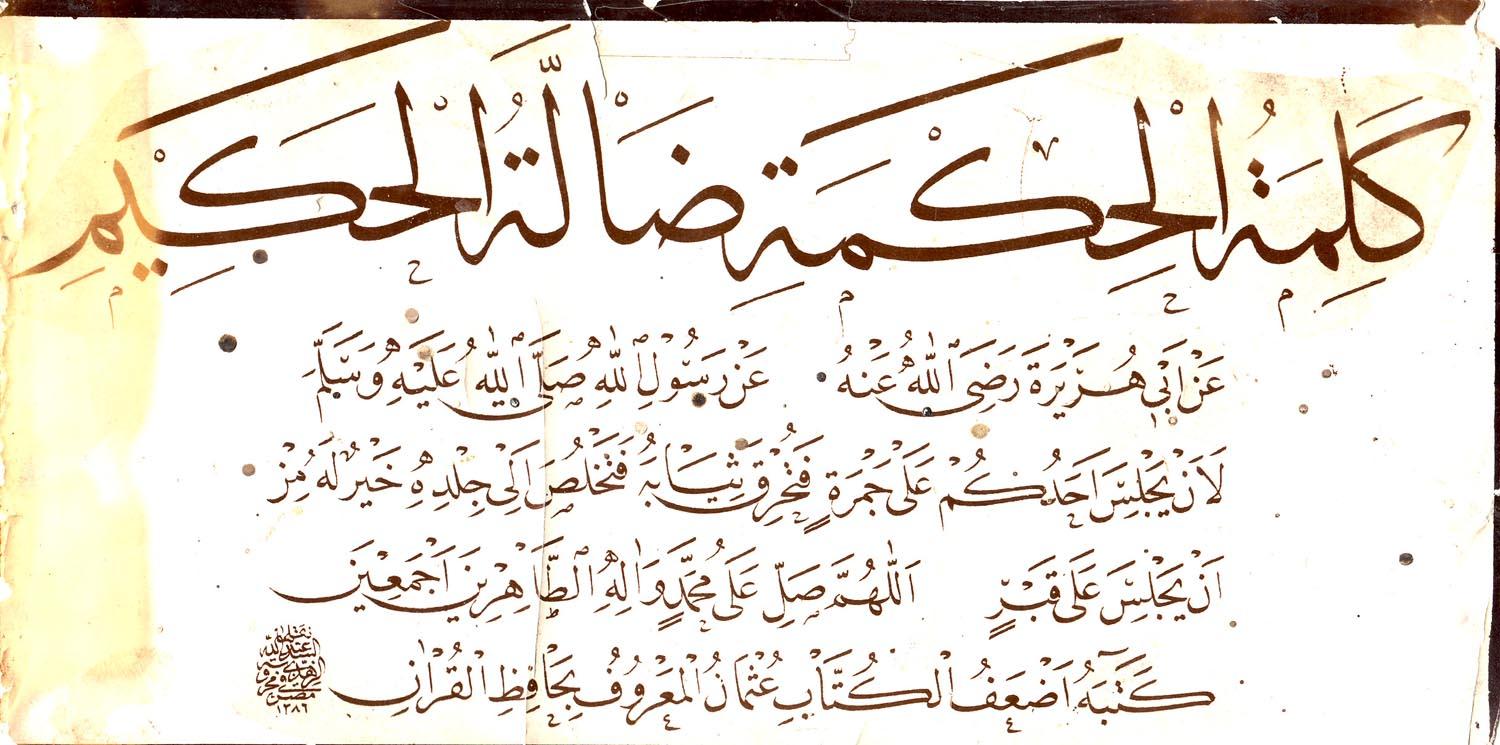 كَلِمَةُ الْحِكْمَةِ ضَالَّةُ الْحَكِيْمِ
عَنْ اَبِى هُرَيْرَةَ رَضِىَ اللّٰهُ عَنْهُ عَنْ رَسُوْلِ اللّٰهِ صَلَّى اللّٰهُ عَلَيْهِ وَسَلَّمَ
لَاَنْ يَجْلِسَ اَحَدُكُمْ عَلَى جَمْرَةٍ فَتَحْرِقَ ثِيَابَهُ فَتَخْلُصَ اِلَى جِلْدِهِ خَيْرٌ لَهُ مِنْ
اَنْ يَجْلِسَ عَلَى قَبْرٍ اَللّٰهُمَّ صَلِّ عَلَى مُحَمَّدٍ وَاٰلِهِ الطَّاهِرِيْنَ اَجْمَعِيْنَ
كَتَبَهُ اَضْعَفُ الْكُتَّابِ عُثْمَانُ الْمَعْرُوفُ بِحَافِظِ الْقُرْاٰنِ
١٣٨٦